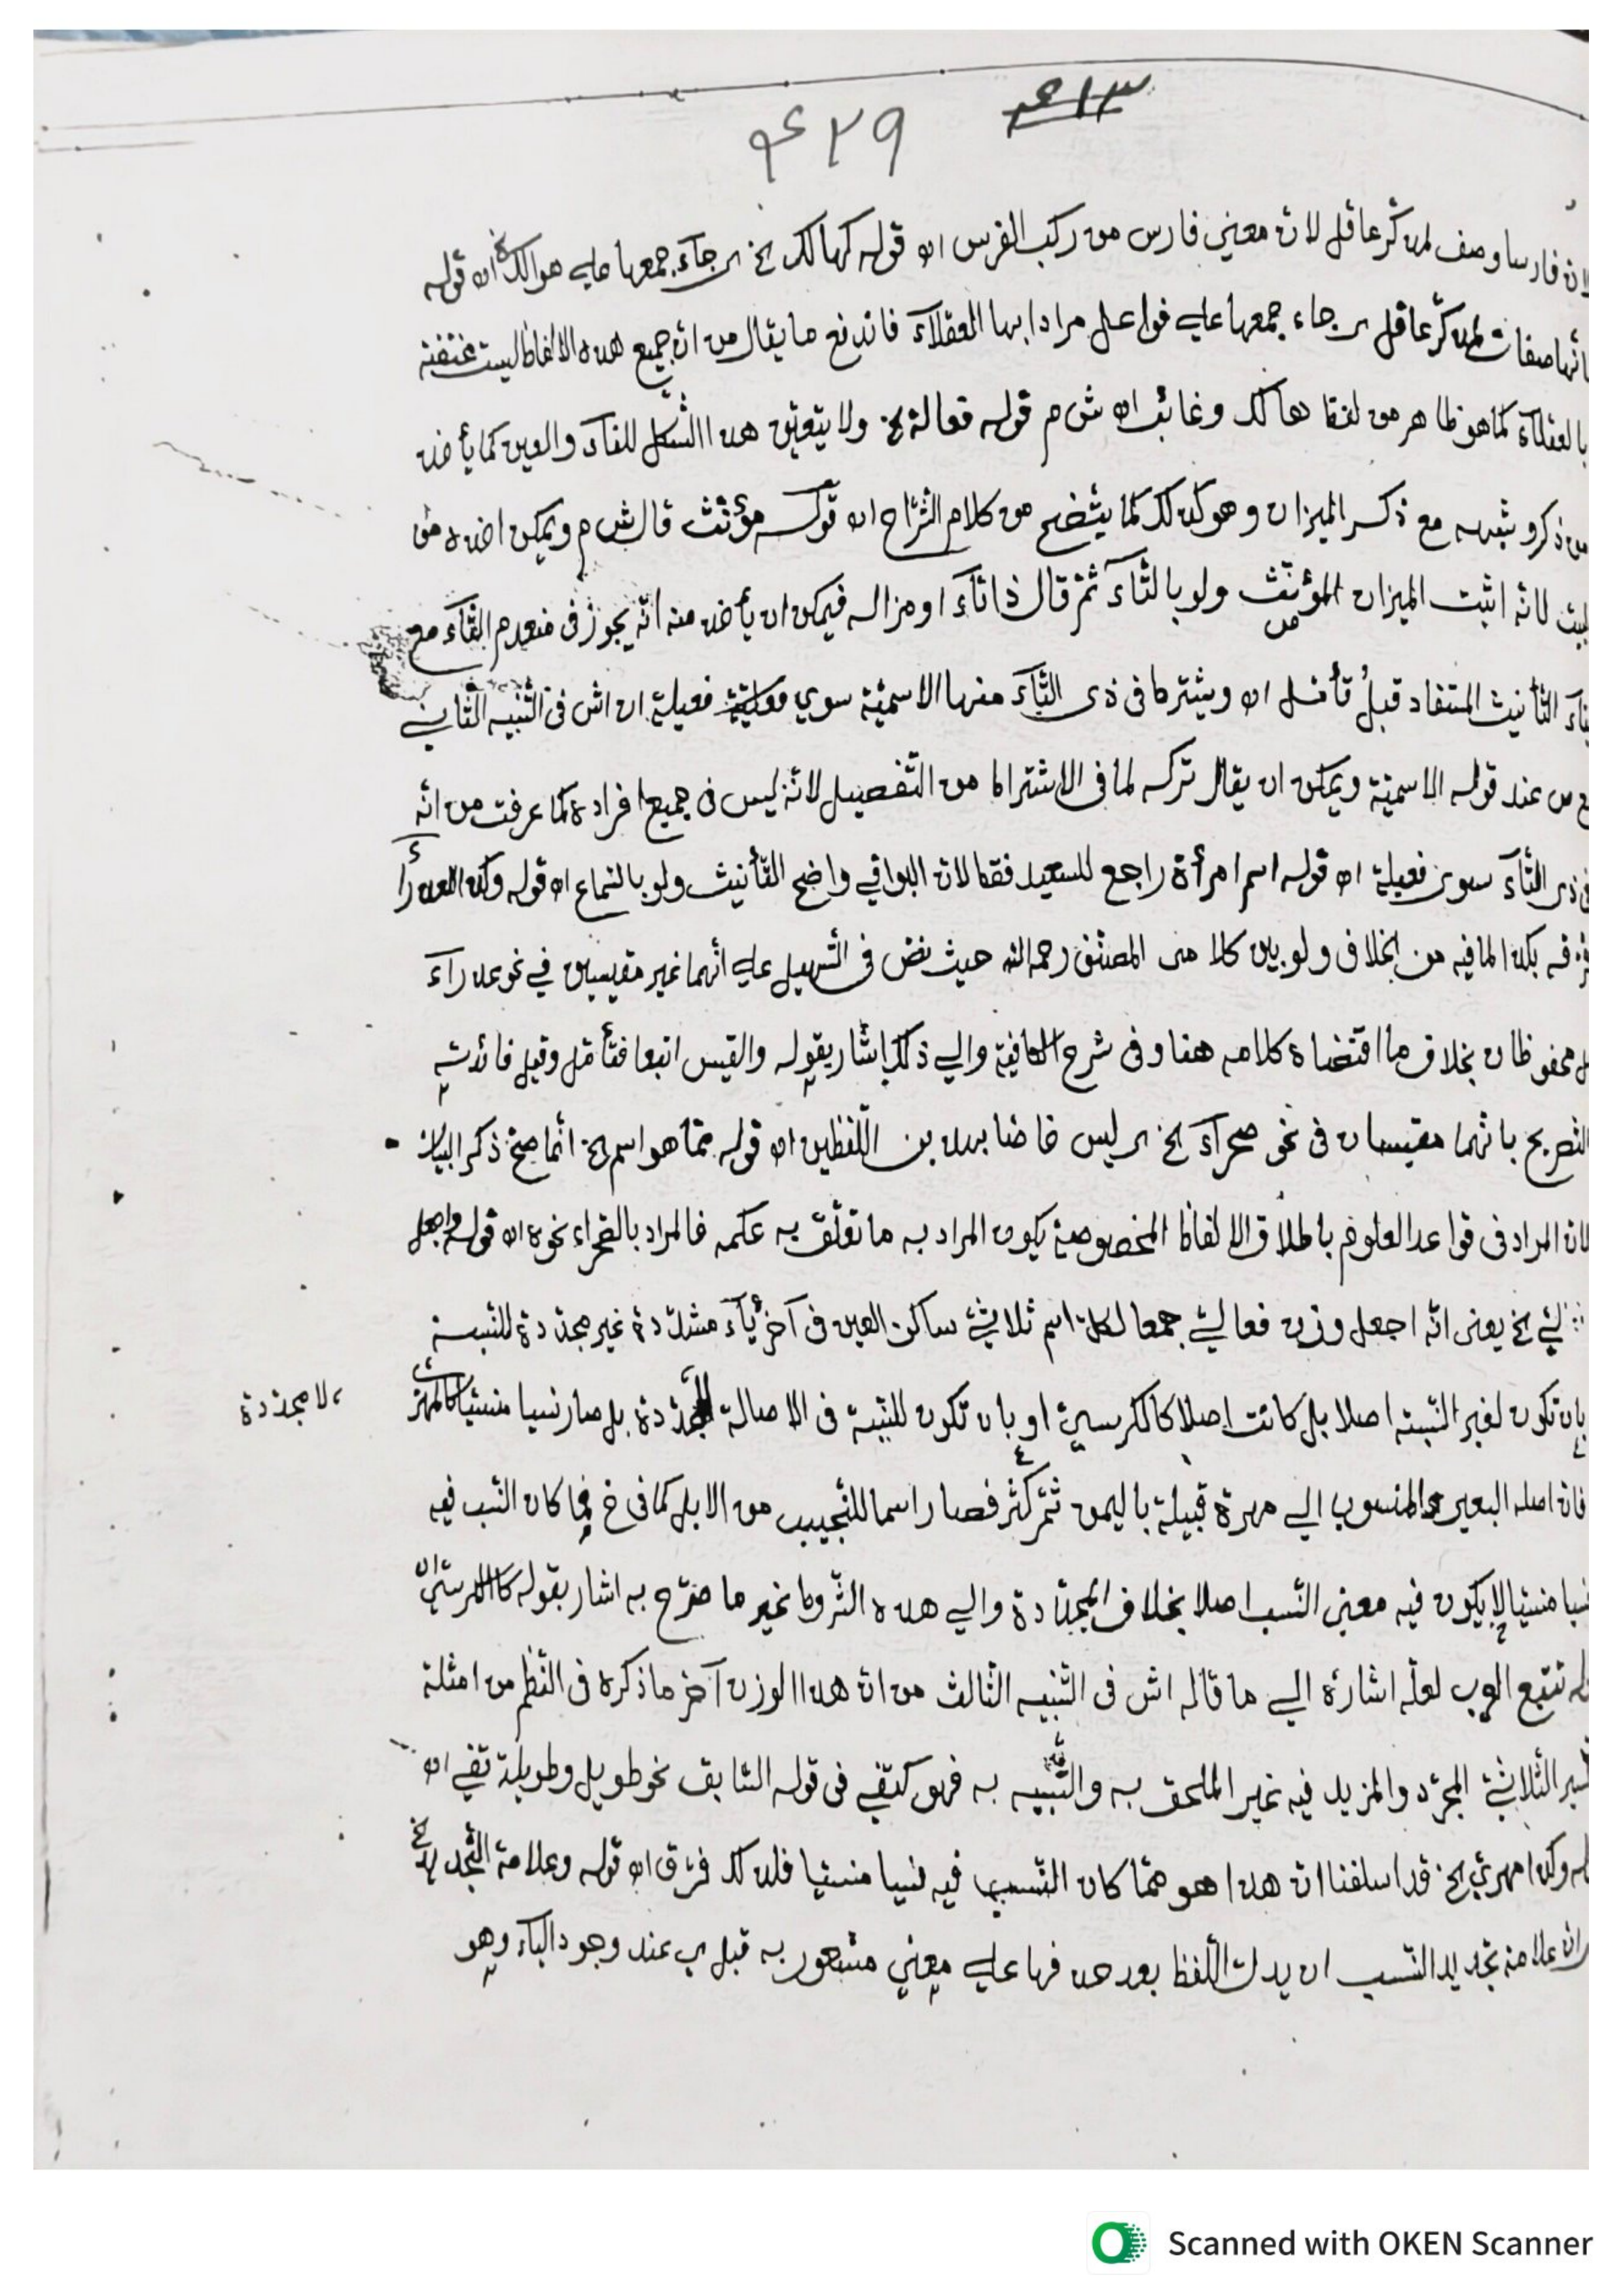 ٤١٣
٤٢٩
لانّ فارسا وصف لمذكّر عاقل لانّ معني فارس من ركب الفرس اه قوله كهالك الخ اي جآء جمعها علي هوالك الخ اه قوله
بانّها صفات لمذكّر عاقل اي جاء جمعها علي فواعل مرادا بها العقلآء فاندفع ما يقال من انّ جميع هذه الالفاظ ليست مختصّة
بالعقلآء كما هو ظاهر من لفظ هالك وغائب اه ش م قوله فعالة الخ ولا يتعيّن هذا الشّكل للفآء والعين كما يأخذ
من ذكر وشبهه مع ذكر الميزان وهو كذلك كما يتّضح من كلام الشّرّاح اه قوله مؤنّث قال ش م ويمكن اخذه من
البيت لانّه اثبت الميزان المؤنّث ولو بالتّآء ثمّ قال ذا تآء او مزاله فيمكن ان يأخذ منه انّه يجوز في منعدم التّآء مع
بنآء التّأنيث المستفاد قبلُ تأمّل اه ويشترط في ذي التّآء منها الاسميّة سوي فعيلة اه اش في التّنبيه الثّاني
ع ص عند قوله الاسميّة ويمكن ان يقال تركه لما في الاشتراط من التّفصيل لانّه ليس في جميع افراده كما عرفت من انّه
في ذي التّآء سوي فعيلة اه قوله اسم امرأة راجع للسعيد فقط لانّ البواقي واضح التّأنيث ولو بالسّماع اه قوله وكذا العذرآء
فرّقه بكذا لما فيه من الخلاف ولو بين كلامي المصنّف رحمه الله حيث نصّ في التّسهيل علي أنّهما غير مقيسين في نحو عذرآء
بل محفوظان بخلاف ما اقتضاه كلامه هنا وفي شرح الكافية والي ذلك اشار بقوله والقيس اتبعا فتأمّل وقيل فائدته
التّصريح بانّهما مقيسان في نحو صحرآء الخ اي ليس خاصّا بهذين اللّفظين اه قوله ممّا هو اسم الخ انّما صحّ ذكر البيان
لانّ المراد في قواعد العلوم باطلاق الالفاظ المخصوصة يكون المراد به ما تعلّق به حكمه فالمراد بالصّحراء نحوه اه قوله واجعل
الخ يعني انّه اجعل وزن فعاليّ جمعا لكلّ اسم ثلاثيّ ساكن العين في آخره يآء مشدّدة غير مجدّدة للنّسبة
بان تكون لغير النّسبة اصلا بل كانت اصلا كالكرسيّ او بان تكون للنّسبة في الاصالة لا مجدّدة بل صار نسيا منسيّا كالمهريّ
لا مجدّدة
فانّ اصله البعير المنسوب الي مهرة قبيلة باليمن ثمّ كثر فصار اسما للنّجيب من الابل كما في خ فما كان النّسب فيه
نسيا منسيّا لا يكون فيه معني النّسب اصلا بخلاف المجدّدة والي هذه الشّروط غير ما صرّح به اشار بقوله كالكرسيّ اه
تتبع العرب لعلّه اشارة الي ما قاله اش في التّنبيه الثّالث من انّ هذا الوزن آخر ما ذكره في النّظم من امثلة
تكسير الثّلاثيّ المجرّد والمزيد فيه غير الملحق به والشّبيه به فهو كتفي في قوله السّابق نحو طويل وطويلة تفي اه
قوله وكذا مهريّ الخ قد اسلفنا انّ هذا هو ممّا كان النّسب فيه نسيا منسيّا فلذلك فرّق اه قوله وعلامة التّجدّد الخ
اي انّ علامة تجديد النّسب ان يدلّ اللّفظ بعد حذفها علي معني مشعور به قبل اي عند وجود اليآء وهو
Scanned with OKEN Scanner